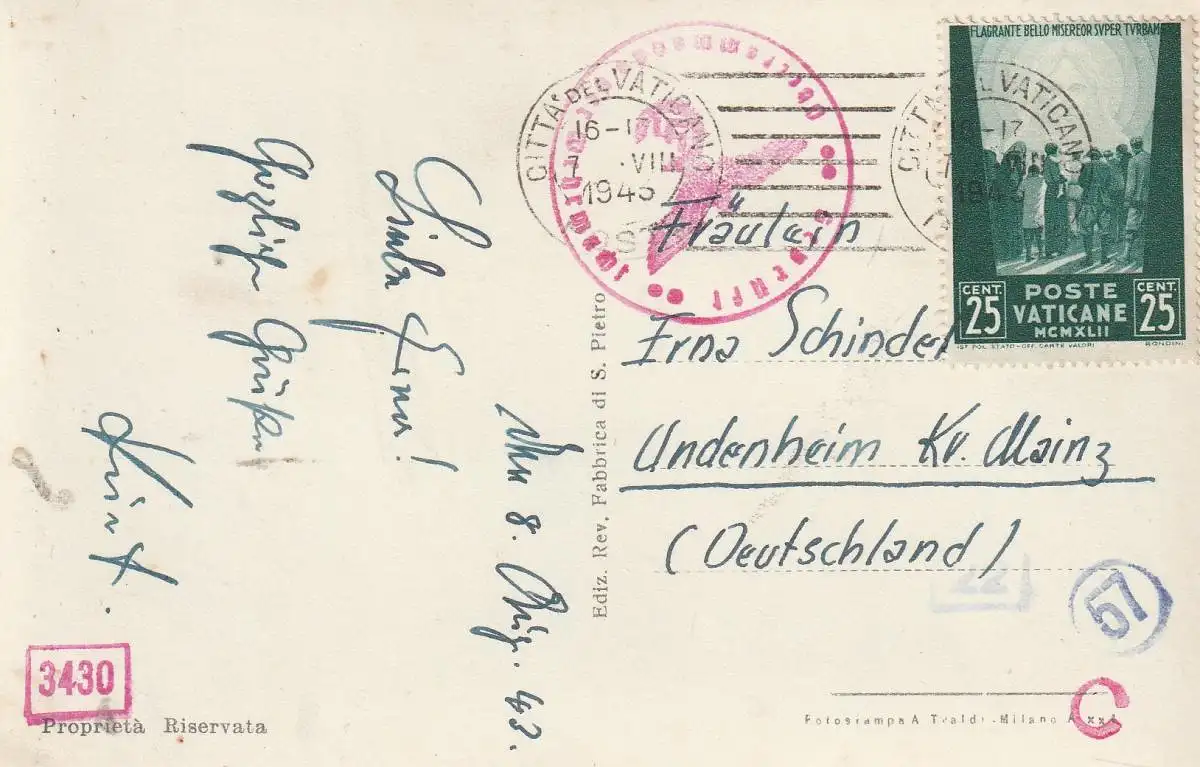 FLAGRANTE BELLO MISEREOR SVPER TVRBAM
CENT. 25
POSTE VATICANE
MCMXLII
CENT. 25
IST. POL. STATO-OFF. CARTE VALORI
RONDINI
CITTÀ DEL VATICANO
16-17
VIII
1943
CITTÀ DEL VATICANO
Oberkommando
Geprüft
Fräulein
Erna Schinde
Undenheim Kr. Mainz
(Deutschland)
8. Aug. 43.
Liebe Erna!
Herzliche Grüße
Kurt.
Ediz. Rev. Fabbrica di S. Pietro
3430
Proprietà Riservata
22
57
C
Fotostampa A Traldi - Milano